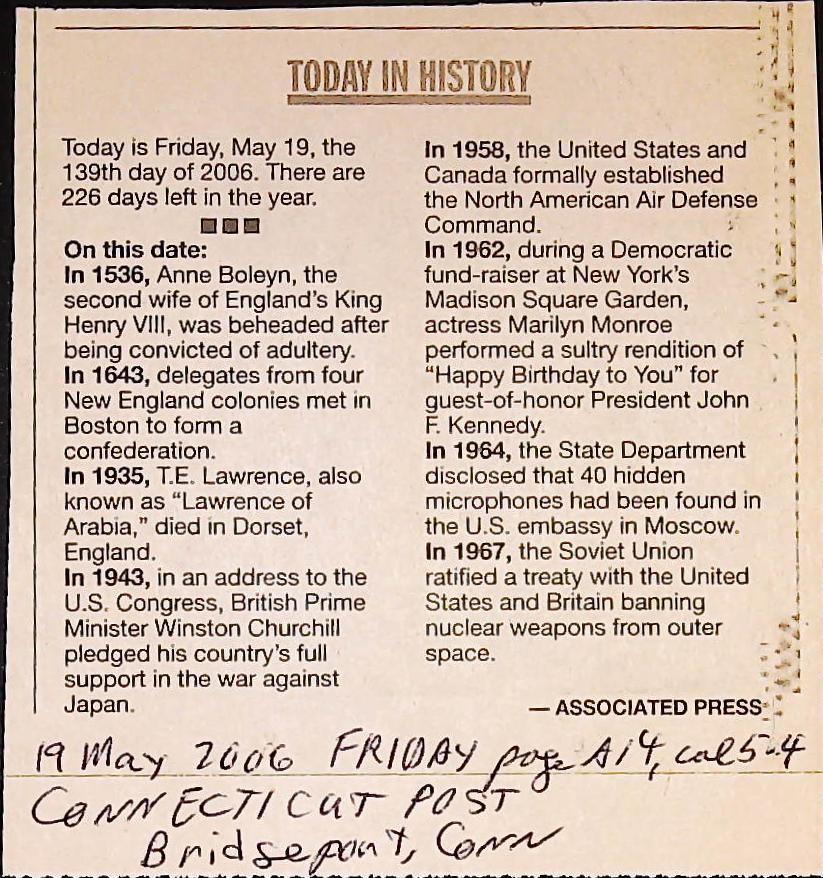 TODAY IN HISTORY
Today is Friday, May 19, the
139th day of 2006. There are
226 days left in the year.
On this date:
In 1536, Anne Boleyn, the
second wife of England's King
Henry VIII, was beheaded after
being convicted of adultery.
In 1643, delegates from four
New England colonies met in
Boston to form a
confederation.
In 1935, T.E. Lawrence, also
known as “Lawrence of
Arabia,” died in Dorset,
England.
In 1943, in an address to the
U.S. Congress, British Prime
Minister Winston Churchill
pledged his country's full
support in the war against
Japan.
In 1958, the United States and
Canada formally established
the North American Air Defense
Command.
In 1962, during a Democratic
fund-raiser at New York's
Madison Square Garden,
actress Marilyn Monroe
performed a sultry rendition of
“Happy Birthday to You” for
guest-of-honor President John
F. Kennedy.
In 1964, the State Department
disclosed that 40 hidden
microphones had been found in
the U.S. embassy in Moscow.
In 1967, the Soviet Union
ratified a treaty with the United
States and Britain banning
nuclear weapons from outer
space.
— ASSOCIATED PRESS
19 May 2006 FRIDAY page A14, col 5-4
CONNECTICUT POST
Bridgeport, Conn